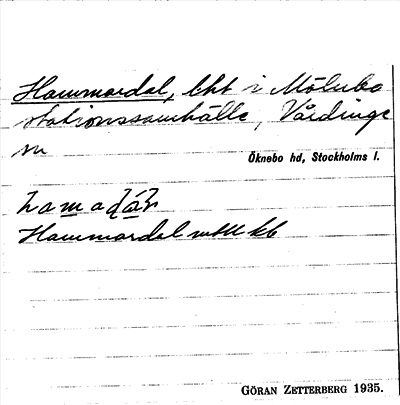 Hammardal, lht i Mölnbo
stationssamhälle, Vårdinge
sn
Öknebo hd, Stockholms l.
Hammardal
GÖRAN ZETTERBERG 1935.